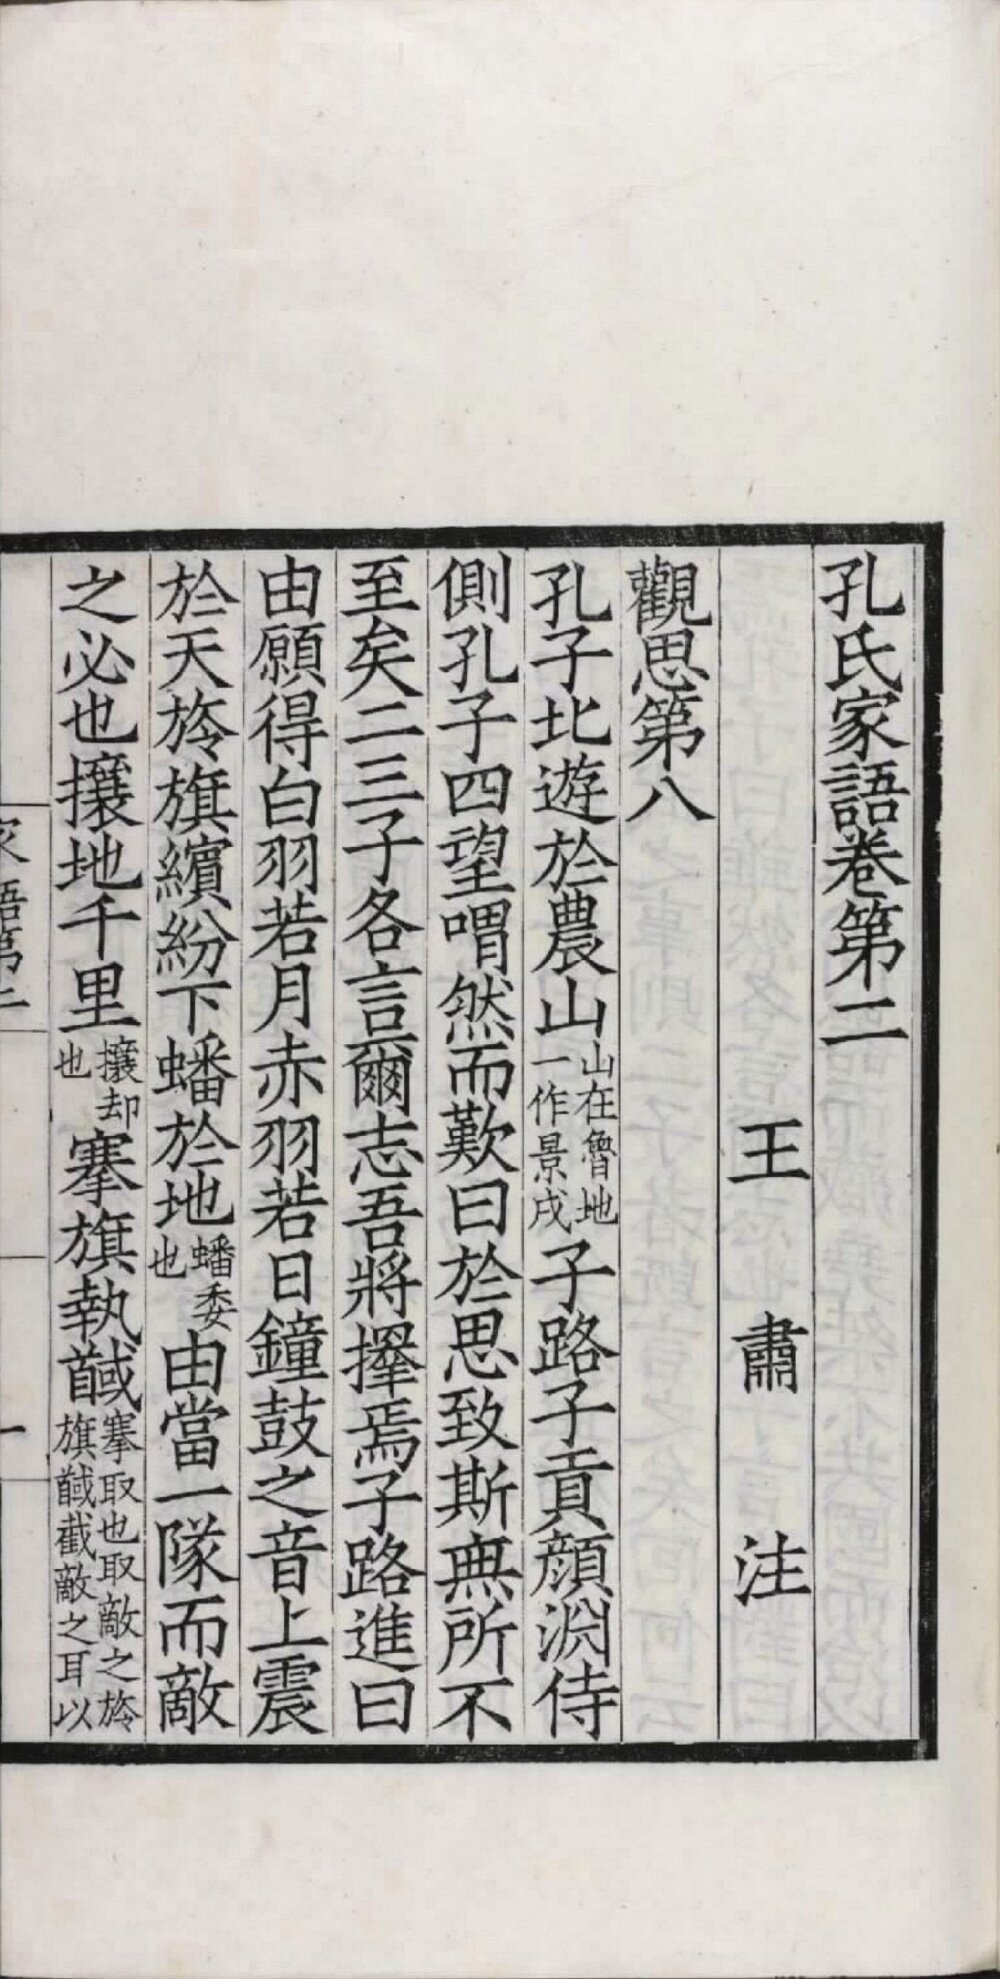 孔氏家語卷第二
王肅注
觀思第八
孔子北遊於農山山在魯地一作景戍子路子貢顔淵侍
側孔子四望喟然而歎曰於思致斯無所不
至矣二三子各言爾志吾將擇焉子路進曰
由願得白羽若月赤羽若日鐘鼓之音上震
於天旍旗繽紛下蟠於地蟠委也由當一隊而敵
之必也攘地千里攘却也搴旗執馘搴取也取敵之旍旗馘截敵之耳以
家語第二
一